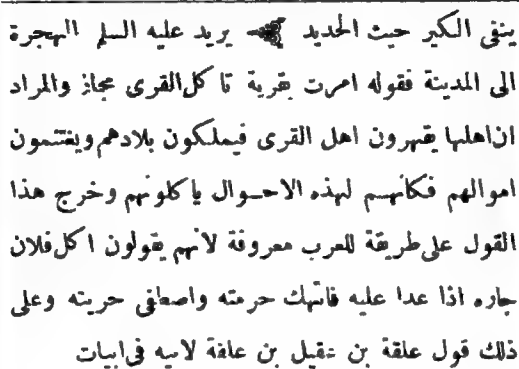 ينفى الكير حيث الحديد يريد عليه السلم الهجرة
الى المدينة فقوله امرت بقرية تا كل القرى مجاز والمراد
ان اهلها يقهرون اهل القرى فيملكون بلادهم ويغتنمون
اموالهم فكأنهم لهذه الاحوال ياكلونهم وخرج هذا
القول على طريقة للعرب معروفة لانهم يقولون اكل فلان
جاره اذا عدا عليه فانتهك حرمته واصطفى حريته وعلى
ذلك قول علقة بن عقيل بن علفة لابيه فى ابيات